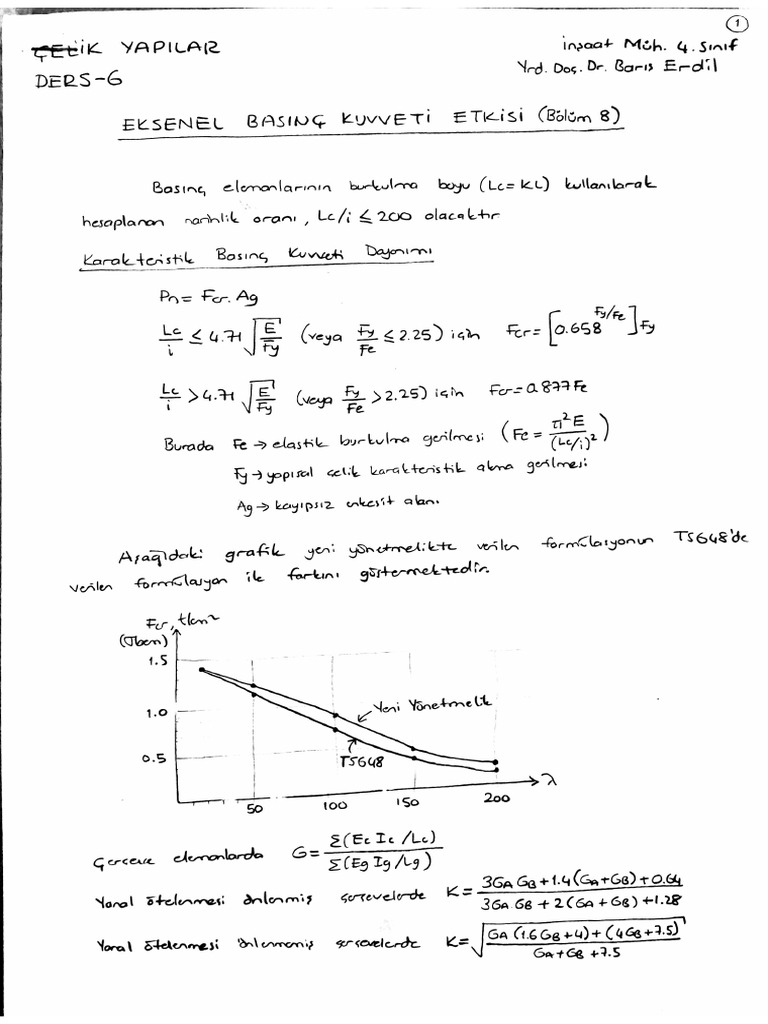 1
ÇELİK YAPILAR
İnşaat Müh. 4. Sınıf
DERS-6
Yrd. Doç. Dr. Barış Erdil
EKSENEL BASINÇ KUVVETİ ETKİSİ (Bölüm 8)
Basınç elemanlarının burkulma boyu (Lc=KL) kullanılarak
hesaplanan narinlik oranı, Lc/i ≤ 200 olacaktır
Karakteristik Basınç Kuvveti Dayanımı
Pn = Fcr. Ag
Lc/i ≤ 4.71 √(E/Fy) (veya Fy/Fe ≤ 2.25) için Fcr = [0.658^(Fy/Fe)] Fy
Lc/i > 4.71 √(E/Fy) (veya Fy/Fe > 2.25) için Fcr = 0.877Fe
Burada Fe → elastik burkulma gerilmesi (Fe = π²E/(Lc/i)²)
Fy → yapısal çelik karakteristik akma gerilmesi
Ag → kayıpsız enkesit alanı
Aşağıdaki grafik yeni yönetmelikte verilen formülasyonun TS648'de
verilen formülasyon ile farkını göstermektedir.
Fcr, t/cm²
(σbem)
1.5
1.0
0.5
Yeni Yönetmelik
TS648
50 100 150 200 λ
Çerçeve elemanlarda G = Σ(Ec Ic /Lc) / Σ(Eg Ig /Lg)
Yanal ötelenmesi önlenmiş çerçevelerde K = (3GA GB + 1.4(GA+GB) + 0.64) / (3GA GB + 2(GA+GB) + 1.28)
Yanal ötelenmesi önlenmemiş çerçevelerde K = √((GA (1.6GB+4) + (4GB+7.5)) / (GA+GB+7.5))